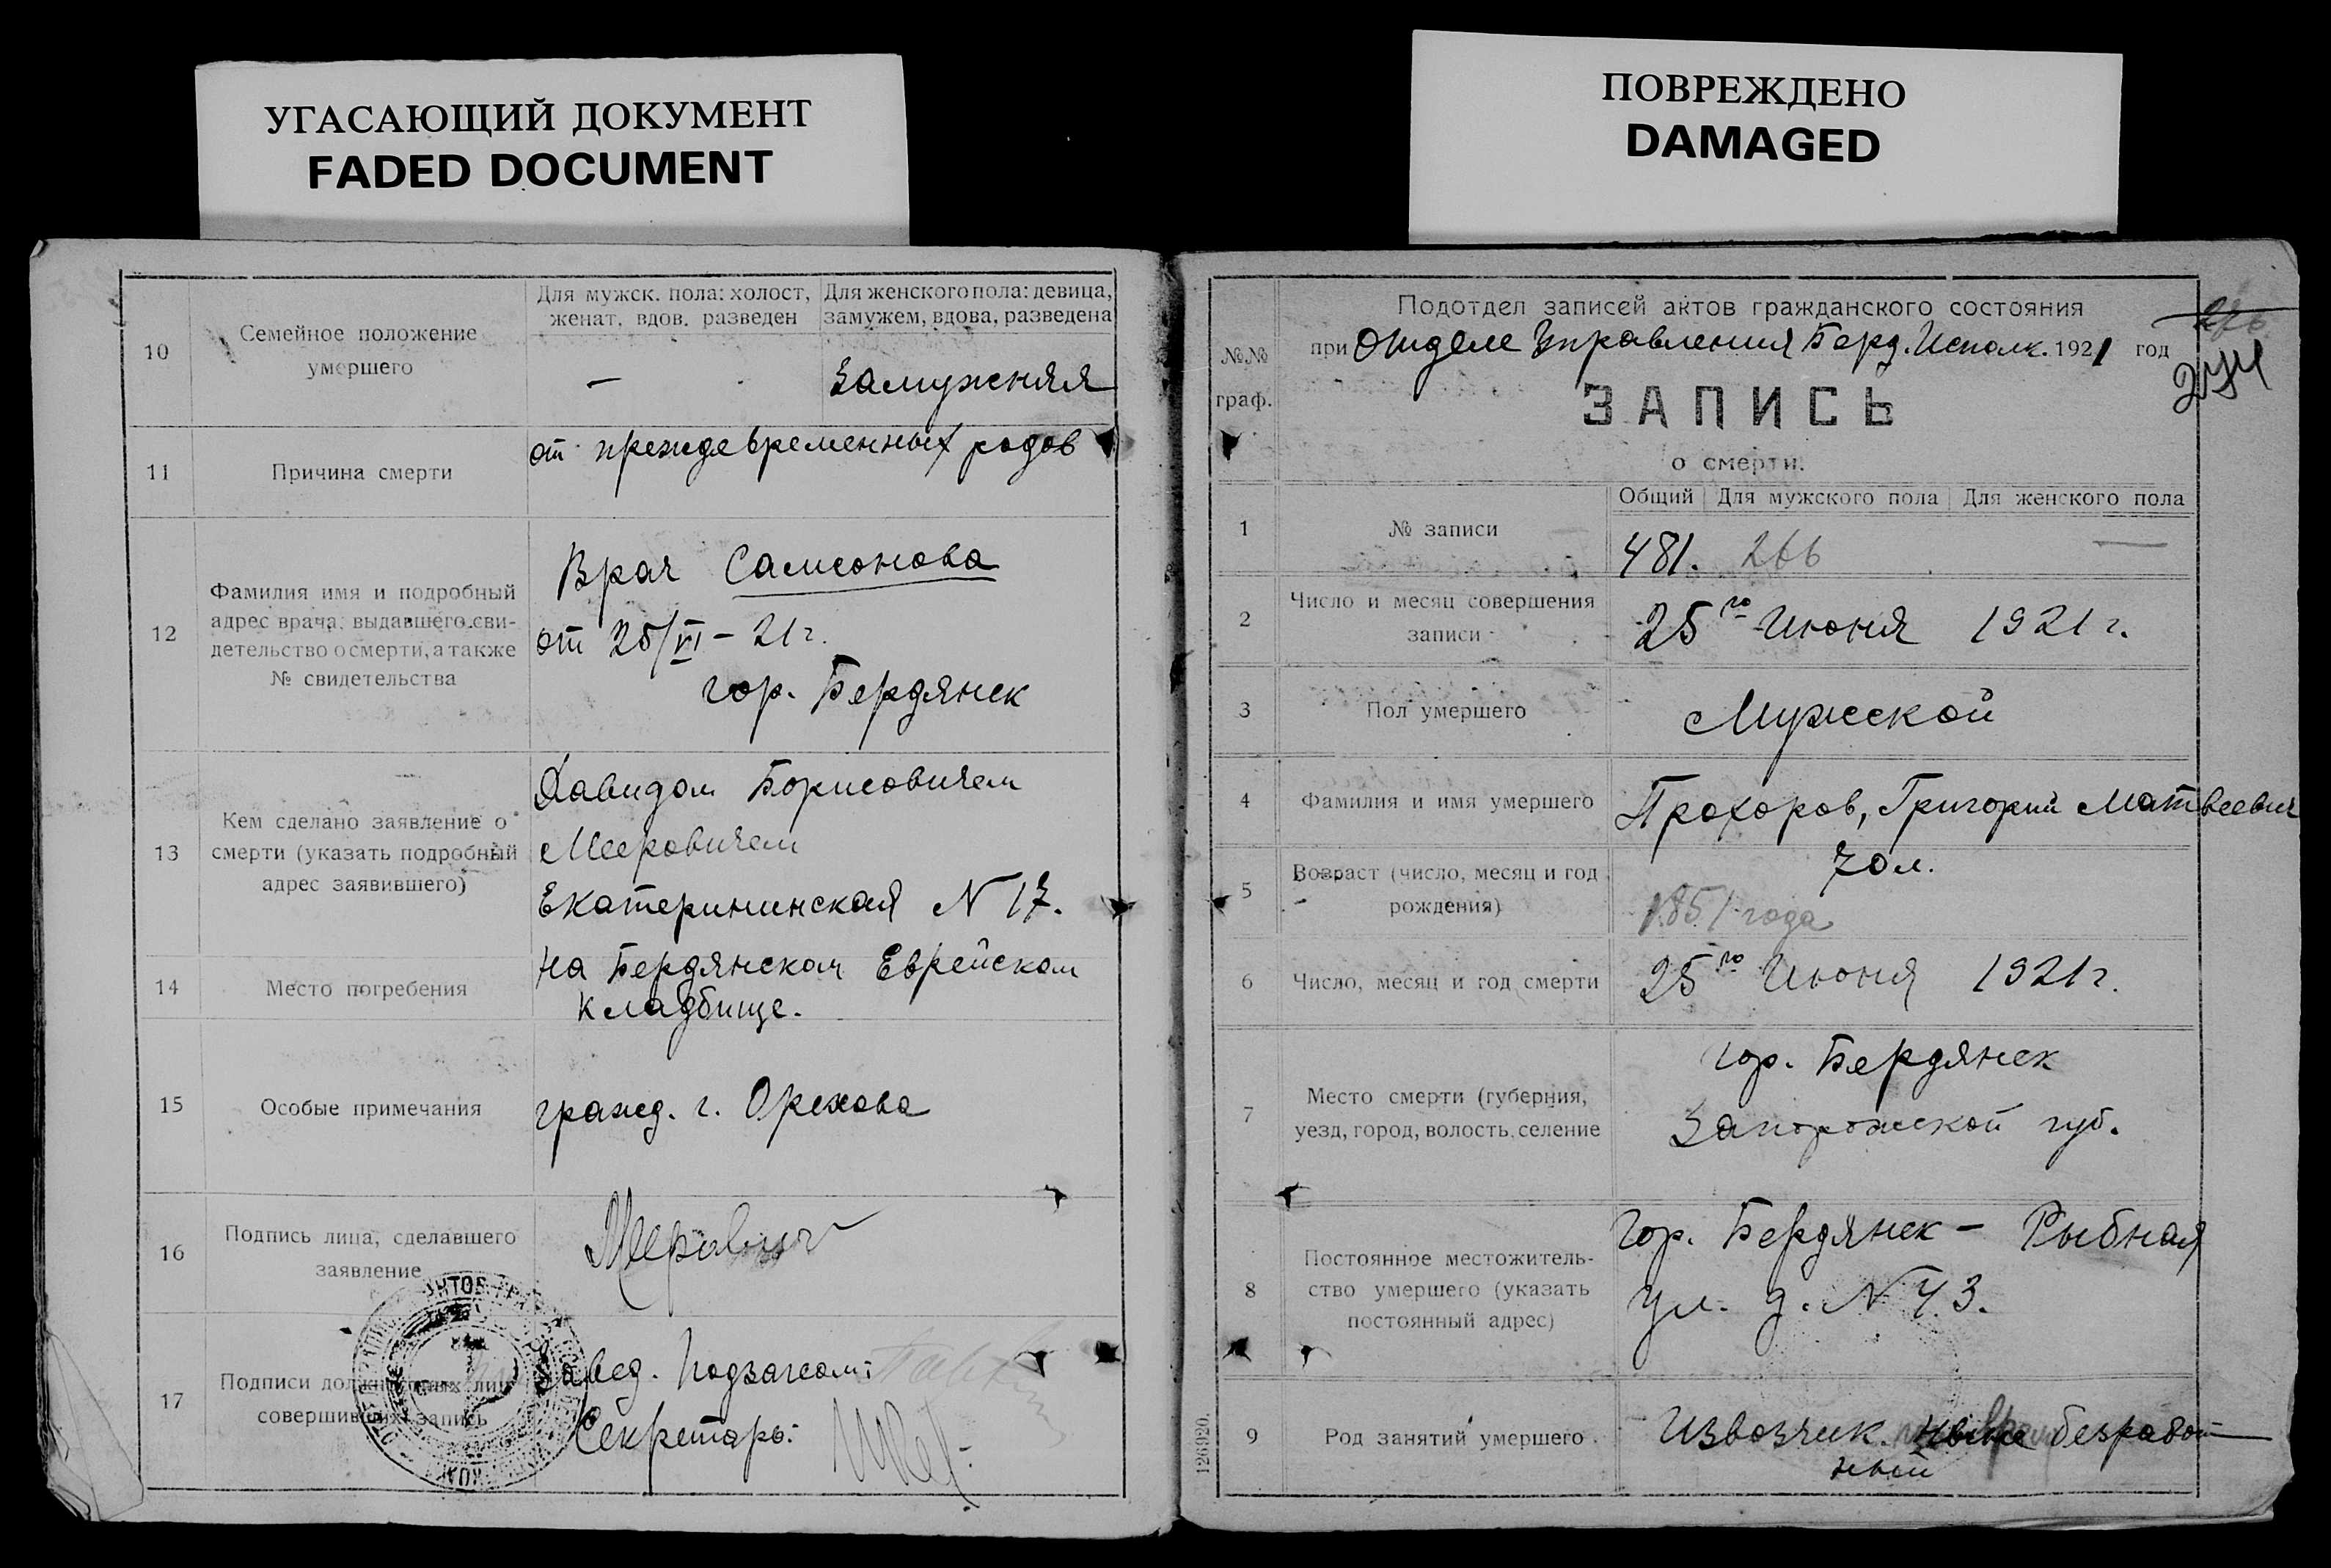 УГАСАЮЩИЙ ДОКУМЕНТ
FADED DOCUMENT
ПОВРЕЖДЕНО
DAMAGED
10
Семейное положение
умершего
Для мужск. пола: холост,
женат, вдов, разведен
Для женского пола: девица,
замужем, вдова, разведена
—
Замужняя
11
Причина смерти
от преждевременных родов
12
Фамилия имя и подробный
адрес врача, выдавшего сви-
детельство о смерти, а также
№ свидетельства
Врач Самсонова
от 25/VI – 21 г.
гор. Бердянск
13
Кем сделано заявление о
смерти (указать подробный
адрес заявившего)
Давидом Борисовичем
Мееровичем
Екатерининская N 17.
14
Место погребения
на Бердянском Еврейском
кладбище.
15
Особые примечания
гражд. г. Орехова
16
Подпись лица, сделавшего
заявление
Меерович
17
Подписи должностных лиц
совершивших запись
Завед. Подзагсом:
Секретарь:
№№
граф.
Подотдел записей актов гражданского состояния
при Отделе Управления Берд. Исполк. 1921 год
266
274
ЗАПИСЬ
о смерти.
1
№ записи
Общий
Для мужского пола
Для женского пола
481.
266
—
2
Число и месяц совершения
записи
25го Июня 1921 г.
3
Пол умершего
Мужской
4
Фамилия и имя умершего
Прохоров, Григорий Матвеевич
5
Возраст (число, месяц и год
рождения)
70 л.
1851 года
6
Число, месяц и год смерти
25го Июня 1921 г.
7
Место смерти (губерния,
уезд, город, волость, селение
гор. Бердянск
Запорожской губ.
8
Постоянное местожитель-
ство умершего (указать
постоянный адрес)
гор. Бердянск – Рыбная
ул. д. N 43.
9
Род занятий умершего
Извозчик. ныне безработ
ный
126920.